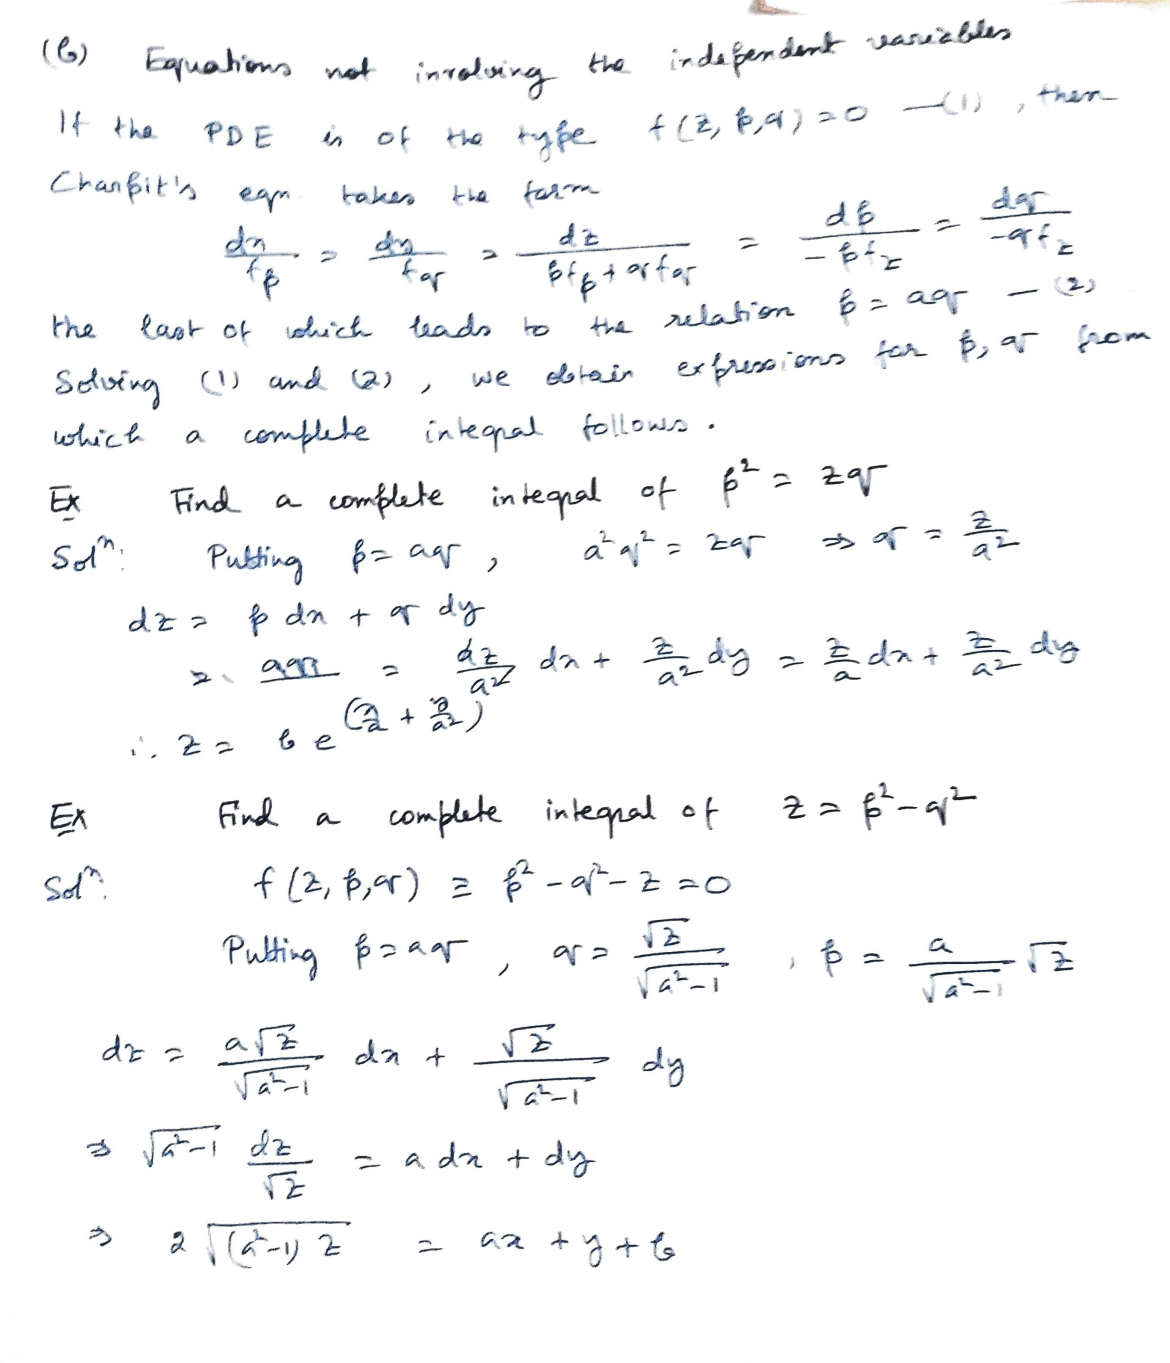 (b) Equations not involving the independent variables
If the PDE is of the type f(z, p, q) = 0 —(1), then
Charpit's eqn. takes the form
dx/f_p = dy/f_q = dz/(p f_p + q f_q) = dp/(-p f_z) = dq/(-q f_z)
the last of which leads to the relation p = aq — (2)
Solving (1) and (2), we obtain expressions for p, q from
which a complete integral follows.
Ex Find a complete integral of p² = zq
Solⁿ: Putting p = aq, a²q² = zq ⇒ q = z/a²
dz = p dx + q dy
= = az/a² dx + z/a² dy = z/a dx + z/a² dy
∴ z = b e^(x/a + y/a²)
Ex Find a complete integral of z = p² - q²
Solⁿ: f(z, p, q) ≡ p² - q² - z = 0
Putting p = aq, q = √z/√(a²-1), p = a/√(a²-1) √z
dz = a√z/√(a²-1) dx + √z/√(a²-1) dy
⇒ √(a²-1) dz/√z = a dx + dy
⇒ 2√((a²-1) z) = ax + y + b